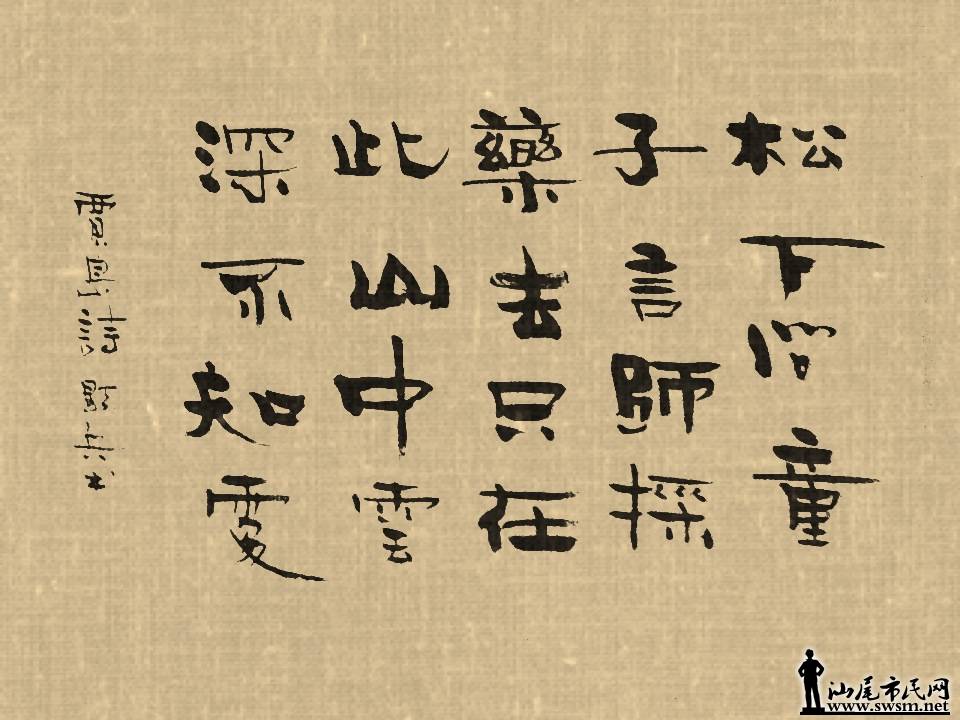 松下問童
子言師採
藥去只在
此山中雲
深不知處
賈島詩
汕尾市民网
www.swsm.net